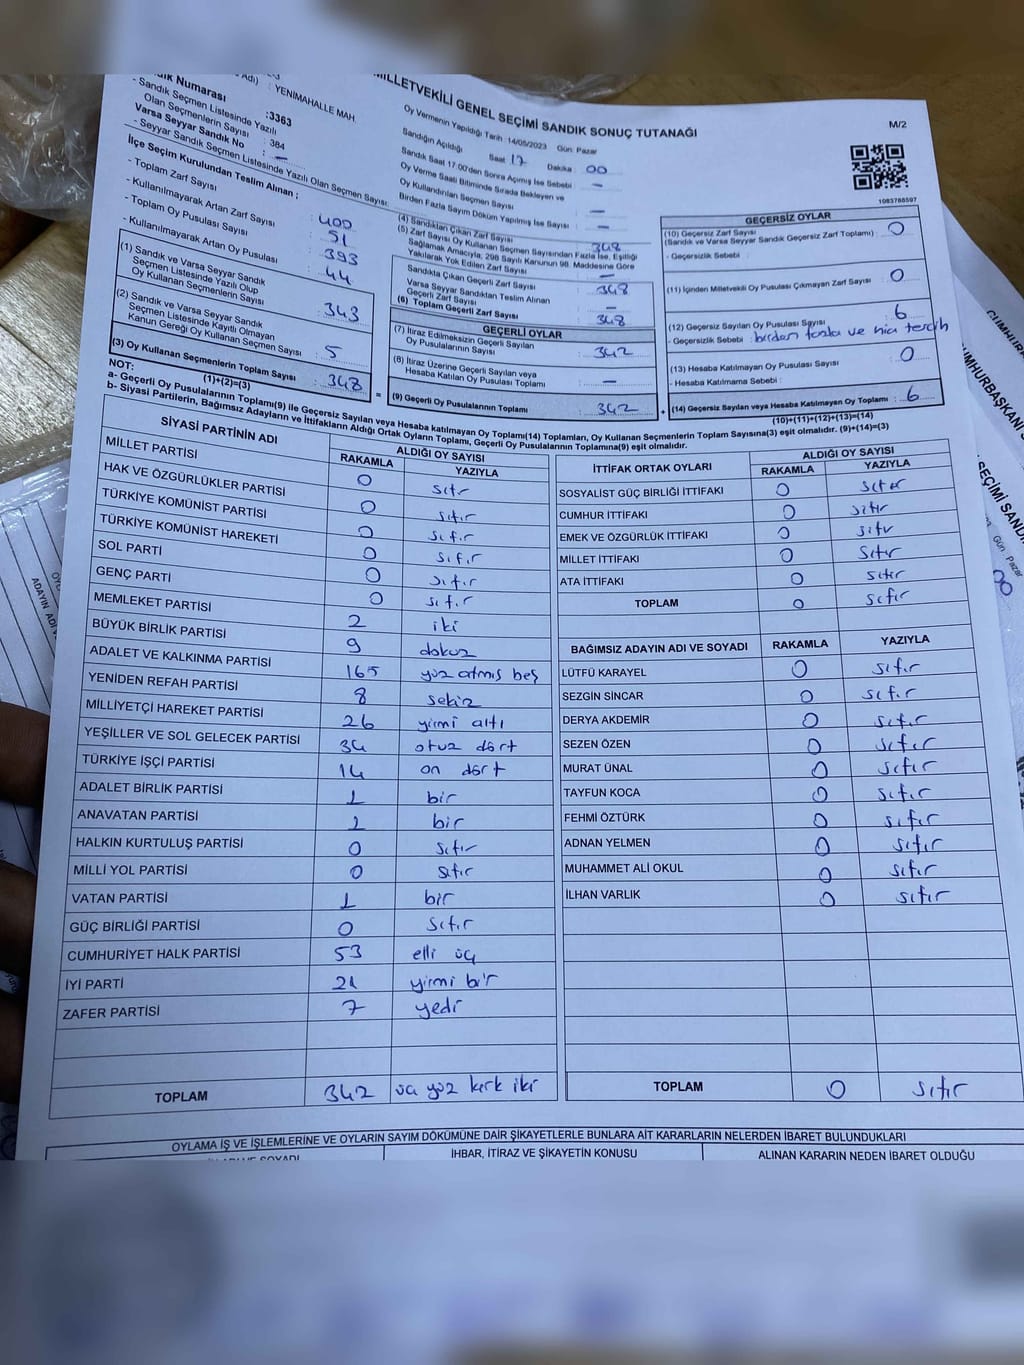 MİLLETVEKİLİ GENEL SEÇİMİ SANDIK SONUÇ TUTANAĞI
M/2
Adı) : YENİMAHALLE MAH.
Numarası :3363
- Sandık Seçmen Listesinde Yazılı
Olan Seçmenlerin Sayısı : 384
Varsa Seyyar Sandık No : –
- Seyyar Sandık Seçmen Listesinde Yazılı Olan Seçmen Sayısı:
İlçe Seçim Kurulundan Teslim Alınan ;
- Toplam Zarf Sayısı : 400
- Kullanılmayarak Artan Zarf Sayısı : 51
- Toplam Oy Pusulası Sayısı : 393
- Kullanılmayarak Artan Oy Pusulası : 44
(1) Sandık ve Varsa Seyyar Sandık
Seçmen Listesinde Yazılı Olup
Oy Kullanan Seçmenlerin Sayısı : 343
(2) Sandık ve Varsa Seyyar Sandık
Seçmen Listesinde Kayıtlı Olmayan
Kanun Gereği Oy Kullanan Seçmen Sayısı : 5
(3) Oy Kullanan Seçmenlerin Toplam Sayısı : 348
(1)+(2)=(3)
Oy Vermenin Yapıldığı Tarih : 14/05/2023 Gün: Pazar
Sandığın Açıldığı Saat : 17 Dakika : 00
Sandık Saat 17:00'den Sonra Açılmış İse Sebebi : –
Oy Verme Saati Bitiminde Sırada Bekleyen ve
Oy Kullandırılan Seçmen Sayısı : –
Birden Fazla Sayım Döküm Yapılmış İse Sayısı : –
(4) Sandıktan Çıkan Zarf Sayısı : 348
(5) Zarf Sayısı Oy Kullanan Seçmen Sayısından Fazla İse, Eşitliği
Sağlamak Amacıyla, 298 Sayılı Kanunun 98. Maddesine Göre
Yakılarak Yok Edilen Zarf Sayısı : –
Sandıkta Çıkan Geçerli Zarf Sayısı : 348
Varsa Seyyar Sandıktan Teslim Alınan
Geçerli Zarf Sayısı : –
(6) Toplam Geçerli Zarf Sayısı : 348
GEÇERLİ OYLAR
(7) İtiraz Edilmeksizin Geçerli Sayılan
Oy Pusulalarının Sayısı : 342
(8) İtiraz Üzerine Geçerli Sayılan veya
Hesaba Katılan Oy Pusulası Toplamı : –
(9) Geçerli Oy Pusulalarının Toplamı : 342
1083788597
GEÇERSİZ OYLAR
(10) Geçersiz Zarf Sayısı : 0
(Sandık ve Varsa Seyyar Sandık Geçersiz Zarf Toplamı)
- Geçersizlik Sebebi :
(11) İçinden Milletvekili Oy Pusulası Çıkmayan Zarf Sayısı : 0
(12) Geçersiz Sayılan Oy Pusulası Sayısı : 6
- Geçersizlik Sebebi : birden fazla ve hiç tercih
(13) Hesaba Katılmayan Oy Pusulası Sayısı : 0
- Hesaba Katılmama Sebebi :
(14) Geçersiz Sayılan veya Hesaba Katılmayan Oy Toplamı : 6
(10)+(11)+(12)+(13)=(14)
NOT:
a- Geçerli Oy Pusulalarının Toplamı(9) ile Geçersiz Sayılan veya Hesaba katılmayan Oy Toplamı(14) Toplamları, Oy Kullanan Seçmenlerin Toplam Sayısına(3) eşit olmalıdır. (9)+(14)=(3)
b- Siyasi Partilerin, Bağımsız Adayların ve İttifakların Aldığı Ortak Oyların Toplamı, Geçerli Oy Pusulalarının Toplamına(9) eşit olmalıdır.
SİYASİ PARTİNİN ADI
ALDIĞI OY SAYISI
RAKAMLA YAZIYLA
MİLLET PARTİSİ 0 sıfır
HAK VE ÖZGÜRLÜKLER PARTİSİ 0 sıfır
TÜRKİYE KOMÜNİST PARTİSİ 0 sıfır
TÜRKİYE KOMÜNİST HAREKETİ 0 sıfır
SOL PARTİ 0 sıfır
GENÇ PARTİ 0 sıfır
MEMLEKET PARTİSİ 2 iki
BÜYÜK BİRLİK PARTİSİ 9 dokuz
ADALET VE KALKINMA PARTİSİ 165 yüz atmış beş
YENİDEN REFAH PARTİSİ 8 sekiz
MİLLİYETÇİ HAREKET PARTİSİ 26 yirmi altı
YEŞİLLER VE SOL GELECEK PARTİSİ 34 otuz dört
TÜRKİYE İŞÇİ PARTİSİ 14 on dört
ADALET BİRLİK PARTİSİ 1 bir
ANAVATAN PARTİSİ 1 bir
HALKIN KURTULUŞ PARTİSİ 0 sıfır
MİLLİ YOL PARTİSİ 0 sıfır
VATAN PARTİSİ 1 bir
GÜÇ BİRLİĞİ PARTİSİ 0 sıfır
CUMHURİYET HALK PARTİSİ 53 elli üç
İYİ PARTİ 21 yirmi bir
ZAFER PARTİSİ 7 yedi
TOPLAM 342 üç yüz kırk iki
İTTİFAK ORTAK OYLARI
ALDIĞI OY SAYISI
RAKAMLA YAZIYLA
SOSYALİST GÜÇ BİRLİĞİ İTTİFAKI 0 sıfır
CUMHUR İTTİFAKI 0 sıfır
EMEK VE ÖZGÜRLÜK İTTİFAKI 0 sıfır
MİLLET İTTİFAKI 0 sıfır
ATA İTTİFAKI 0 sıfır
TOPLAM 0 sıfır
BAĞIMSIZ ADAYIN ADI VE SOYADI RAKAMLA YAZIYLA
LÜTFÜ KARAYEL 0 sıfır
SEZGİN SİNCAR 0 sıfır
DERYA AKDEMİR 0 sıfır
SEZEN ÖZEN 0 sıfır
MURAT ÜNAL 0 sıfır
TAYFUN KOCA 0 sıfır
FEHMİ ÖZTÜRK 0 sıfır
ADNAN YELMEN 0 sıfır
MUHAMMET ALİ OKUL 0 sıfır
İLHAN VARLIK 0 sıfır
TOPLAM 0 sıfır
OYLAMA İŞ VE İŞLEMLERİNE VE OYLARIN SAYIM DÖKÜMÜNE DAİR ŞİKAYETLERLE BUNLARA AİT KARARLARIN NELERDEN İBARET BULUNDUKLARI
SOYADI
İHBAR, İTİRAZ VE ŞİKAYETİN KONUSU
ALINAN KARARIN NEDEN İBARET OLDUĞU
CUMHURBAŞKANI
SEÇİMİ SANDI
Gün : Pazar
ADAYIN ADI